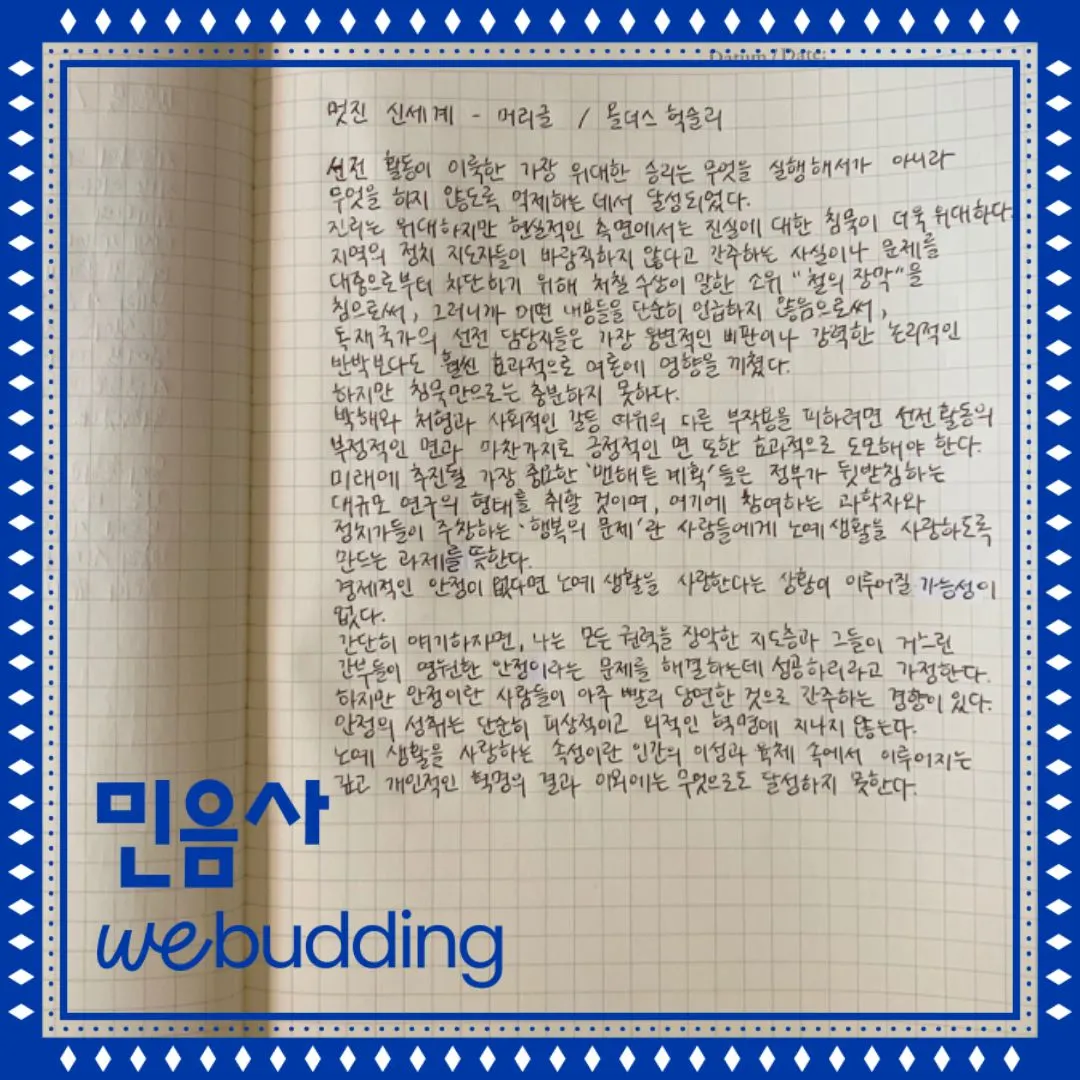 Diarium / Date.
멋진 신세계 - 머리글 / 올더스 헉슬리
선전 활동이 이룩한 가장 위대한 승리는 무엇을 실행해서가 아니라
무엇을 하지 않도록 억제하는 데서 달성되었다.
진리는 위대하지만 현실적인 측면에서는 진실에 대한 침묵이 더욱 위대하다.
지역의 정치 지도자들이 바람직하지 않다고 간주하는 사실이나 문제를
대중으로부터 차단하기 위해 처칠 수상이 말한 소위 "철의 장막"을
침으로써, 그러니까 어떤 내용들을 단순히 언급하지 않음으로써,
독재국가의 선전 담당자들은 가장 웅변적인 비판이나 강력한 논리적인
반박보다도 훨씬 효과적으로 여론에 영향을 끼쳤다.
하지만 침묵만으로는 충분하지 못하다.
박해와 처형과 사회적인 갈등 따위의 다른 부작용을 피하려면 선전 활동의
부정적인 면과 마찬가지로 긍정적인 면 또한 효과적으로 도모해야 한다.
미래에 추진될 가장 중요한 '맨해튼 계획'들은 정부가 뒷받침하는
대규모 연구의 형태를 취할 것이며, 여기에 참여하는 과학자와
정치가들이 주창하는 '행복의 문제'란 사람들에게 노예 생활을 사랑하도록
만드는 과제를 뜻한다.
경제적인 안정이 없다면 노예 생활을 사랑한다는 상황이 이루어질 가능성이
없다.
간단히 얘기하자면, 나는 모든 권력을 장악한 지도층과 그들이 거느린
간부들이 영원한 안정이라는 문제를 해결하는데 성공하리라고 가정한다.
하지만 안정이란 사람들이 아주 빨리 당연한 것으로 간주하는 경향이 있다.
안정의 성취는 단순히 피상적이고 외적인 혁명에 지나지 않는다.
노예 생활을 사랑하는 속성이란 인간의 이성과 육체 속에서 이루어지는
깊고 개인적인 혁명의 결과 이외에는 무엇으로도 달성하지 못한다.
민음사
webudding